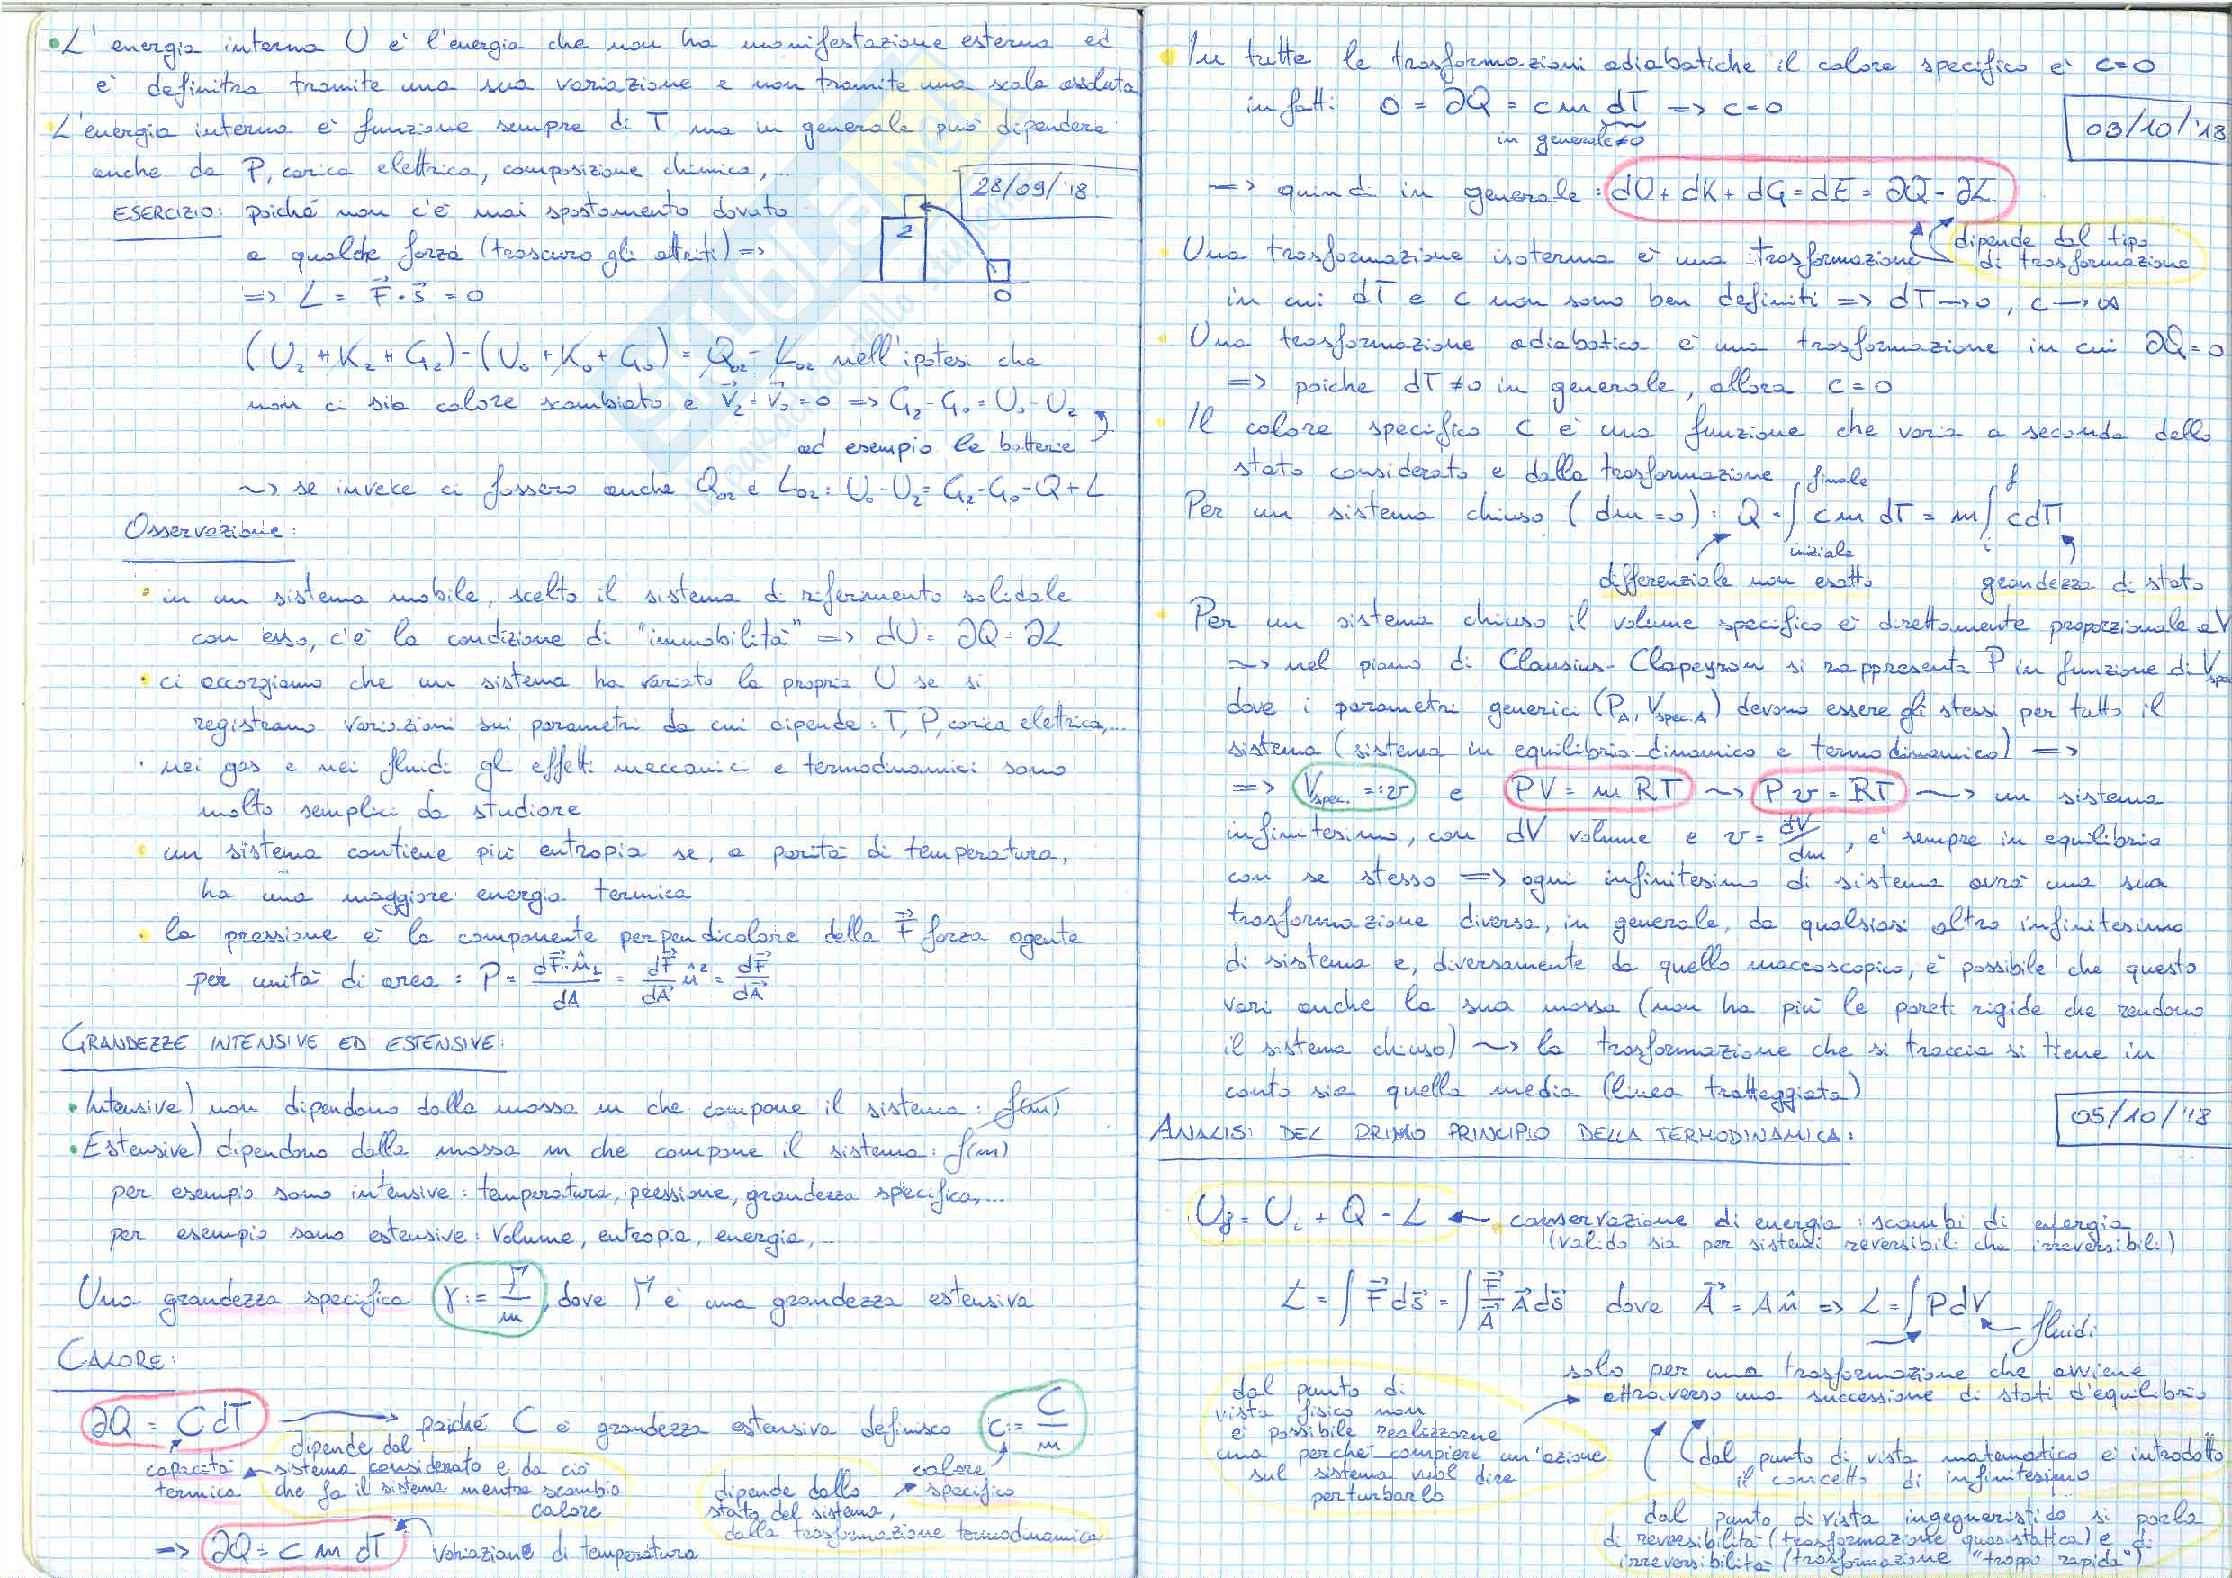 • L'energia interna U è l'energia che non ha manifestazione esterna ed
è definita tramite una sua variazione e non tramite una scala assoluta
• L'energia interna è funzione sempre di T ma in generale può dipendere
anche da P, carica elettrica, composizione chimica,...
28/09/'18
ESERCIZIO: poiché non c'è mai spostamento dovuto
a qualche forza (trascuro gli attriti) =>
=> L = F⃗ · s⃗ = 0
2
0
(U₂ + K₂ + G₂) - (U₀ + K₀ + G₀) = Q₀₂ - L₀₂ nell'ipotesi che
non ci sia calore scambiato e v⃗₂ = v⃗₀ = 0 => G₂ - G₀ = U₀ - U₂
ad esempio le batterie
~> se invece ci fossero anche Q₀₂ e L₀₂: U₀ - U₂ = G₂ - G₀ - Q + L
Osservazione:
• in un sistema mobile, scelto il sistema di riferimento solidale
con esso, c'è la condizione di "immobilità" => dU = ∂Q - ∂L
• ci accorgiamo che un sistema ha variato la propria U se si
registrano variazioni sui parametri da cui dipende: T, P, carica elettrica,...
• nei gas e nei fluidi gli effetti meccanici e termodinamici sono
molto semplici da studiare
• un sistema contiene più entropia se, a parità di temperatura,
ha una maggiore energia termica
• la pressione è la componente perpendicolare della F⃗ forza agente
per unità di area: P = dF⃗·û⊥/dA = dF⃗/dA⃗ û² = dF⃗/dA⃗
GRANDEZZE INTENSIVE ED ESTENSIVE:
• Intensive) non dipendono dalla massa m che compone il sistema: f(m)
• Estensive) dipendono dalla massa m che compone il sistema: f(m)
per esempio sono intensive: temperatura, pressione, grandezza specifica,...
per esempio sono estensive: Volume, entropia, energia,...
Una grandezza specifica γ := Γ/m, dove Γ è una grandezza estensiva
CALORE:
∂Q = C dT → poiché C è grandezza estensiva definisco c := C/m
capacità termica
dipende dal
sistema considerato e da ciò
che fa il sistema mentre scambia
calore
calore specifico
dipende dallo
stato del sistema,
dalla trasformazione termodinamica
=> ∂Q = c m dT variazione di temperatura
• In tutte le trasformazioni adiabatiche il calore specifico è c=0
infatti 0 = ∂Q = c m dT => c=0
in generale ≠0
03/10/'18
=> quindi in generale: dU + dK + dG = dE = ∂Q - ∂L
dipende dal tipo
di trasformazione
• Una trasformazione isoterma è una trasformazione
in cui dT e c non sono ben definiti => dT → 0, c → ∞
• Una trasformazione adiabatica è una trasformazione in cui ∂Q=0
=> poiche dT ≠0 in generale, allora c=0
• Il calore specifico c è una funzione che varia a seconda dello
stato considerato e dalla trasformazione
Per un sistema chiuso (dm=0): Q = ∫ iniziale finale c m dT = m ∫ i f c dT
differenziale non esatto
grandezza di stato
• Per un sistema chiuso il volume specifico è direttamente proporzionale a V
~> nel piano di Clausius-Clapeyron si rappresenta P in funzione di Vspec
dove i parametri generici (P_A, Vspec.A) devono essere gli stessi per tutto il
sistema (sistema in equilibrio dinamico e termodinamico) =>
=> Vspec. =: v e PV = m RT ~> P v = RT ~> un sistema
infinitesimo, con dV volume e v = dV/dm, è sempre in equilibrio
con se stesso => ogni infinitesimo di sistema avrà una sua
trasformazione diversa, in generale, da qualsiasi altro infinitesimo
di sistema e, diversamente da quello macroscopico, è possibile che questo
vari anche la sua massa (non ha più le pareti rigide che rendono
il sistema chiuso) ~> la trasformazione che si traccia si tiene in
conto sia quella media (linea tratteggiata)
05/10/'18
ANALISI DEL PRIMO PRINCIPIO DELLA TERMODINAMICA:
Uf = Ui + Q - L ← conservazione di energia: scambi di energia
(valido sia per sistemi reversibili che irreversibili)
L = ∫ F⃗ ds⃗ = ∫ F⃗/A⃗ A⃗ ds⃗ dove A⃗ = A n̂ => L = ∫ P dV
fluidi
solo per una trasformazione che avviene
attraverso una successione di stati d'equilibrio
dal punto di
vista fisico non
è possibile realizzarne
una perché compiere un'azione
sul sistema vuol dire
perturbarlo
dal punto di vista matematico è introdotto
il concetto di infinitesimo
dal punto di vista ingegneristico si parla
di reversibilità (trasformazione quasistatica) e di
irreversibilità (trasformazione "troppo rapida")